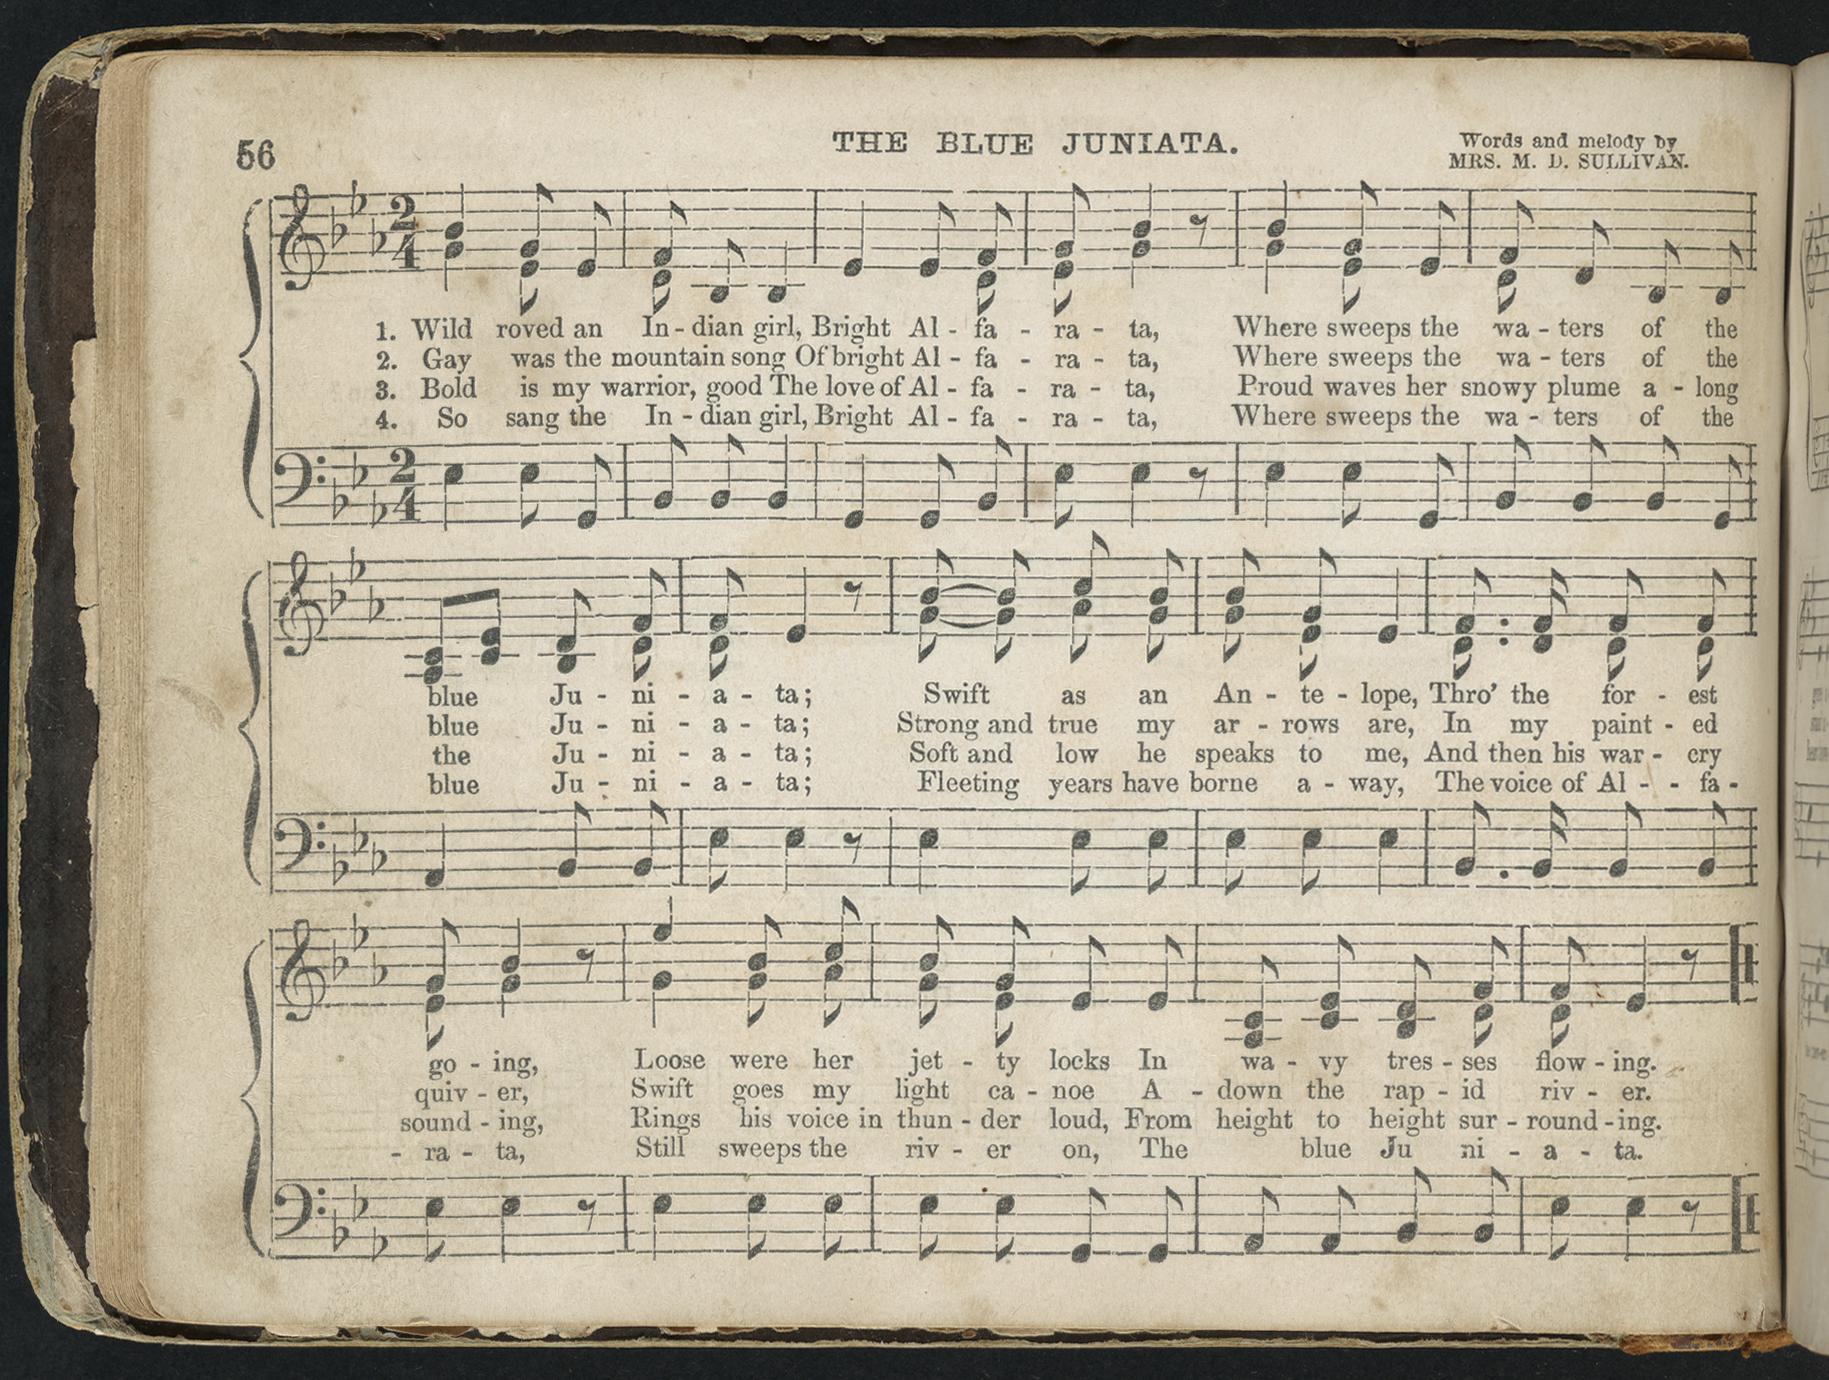 56
THE BLUE JUNIATA.
Words and melody by
MRS. M. D. SULLIVAN.
2
4
1. Wild roved an In - dian girl, Bright Al - fa - ra - ta, Where sweeps the wa - ters of the
2. Gay was the mountain song Of bright Al - fa - ra - ta, Where sweeps the wa - ters of the
3. Bold is my warrior, good The love of Al - fa - ra - ta, Proud waves her snowy plume a - long
4. So sang the In - dian girl, Bright Al - fa - ra - ta, Where sweeps the wa - ters of the
2
4
blue Ju - ni - a - ta; Swift as an An - te - lope, Thro' the for - est
blue Ju - ni - a - ta; Strong and true my ar - rows are, In my paint - ed
the Ju - ni - a - ta; Soft and low he speaks to me, And then his war - cry
blue Ju - ni - a - ta; Fleeting years have borne a - way, The voice of Al - - fa -
go - ing, Loose were her jet - ty locks In wa - vy tres - ses flow - ing.
quiv - er, Swift goes my light ca - noe A - down the rap - id riv - er.
sound - ing, Rings his voice in thun - der loud, From height to height sur - round - ing.
- ra - ta, Still sweeps the riv - er on, The blue Ju ni - a - ta.